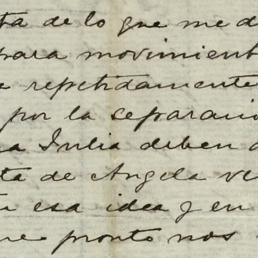 ta de lo que me d
para movimient
e repetidamente
por la separaci
a Julia deben d
ta de Angela ve
esa idea y en
pronto nos